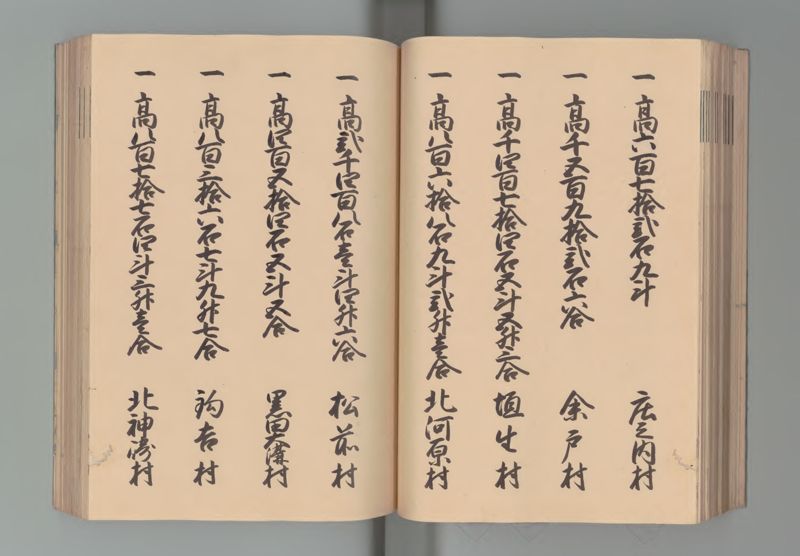 一 高六百七拾弐石九斗 庄之内村
一 高千五百九拾弐石六合 余戸村
一 高千四百七拾四石五斗五升三合 垣生村
一 高八百六拾八石九斗弐升壱合 北河原村
一 高弐千四百八石壱斗四升六合 松前村
一 高四百五拾四石五斗五合 黒田大溝村
一 高八百三拾六石七斗九升七合 鶴吉村
一 高八百七拾七石四斗三升壱合 北神崎村